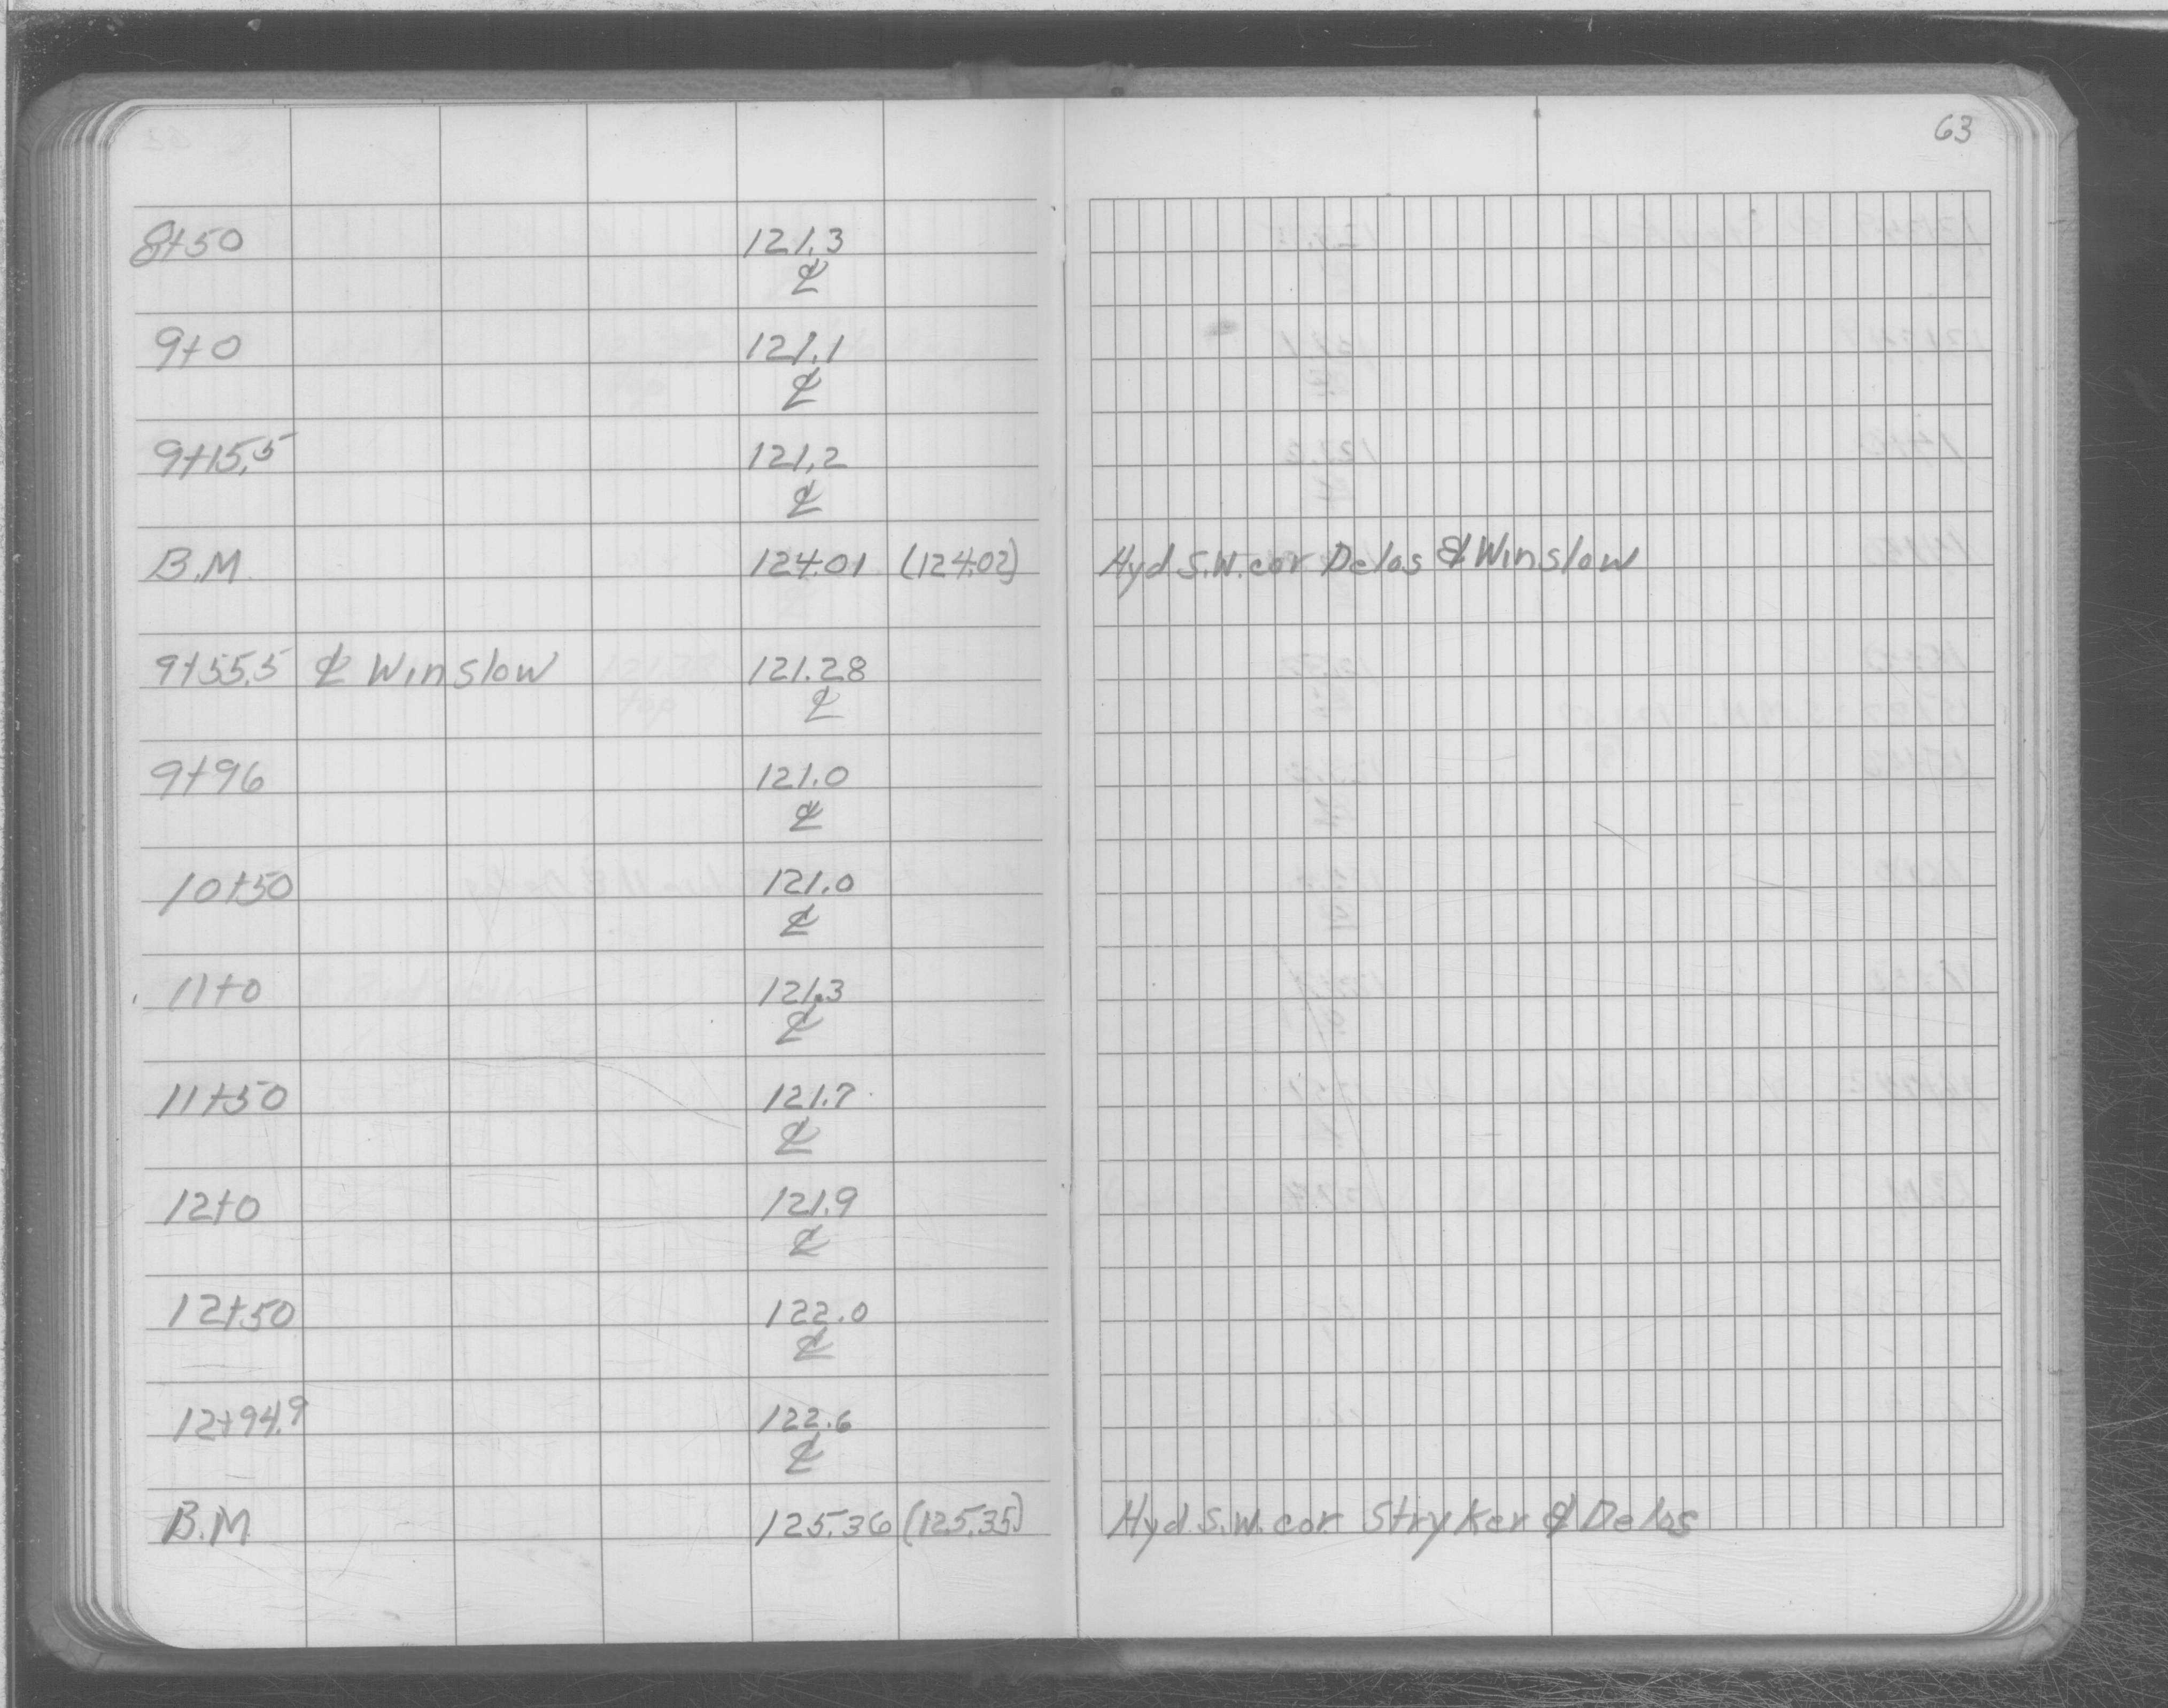 63
8+50 121.3
℄
9+0 121.1
℄
9+15.5 121.2
℄
B.M. 124.01 (124.02) Hyd S.W. cor Delos & Winslow
9+55.5 ℄ Winslow 121.28
℄
9+96 121.0
℄
10+50 121.0
℄
11+0 121.3
℄
11+50 121.7
℄
12+0 121.9
℄
12+50 122.0
℄
12+94.9 122.6
℄
B.M. 125.36 (125.35) Hyd. S.W. cor Stryker & Delos